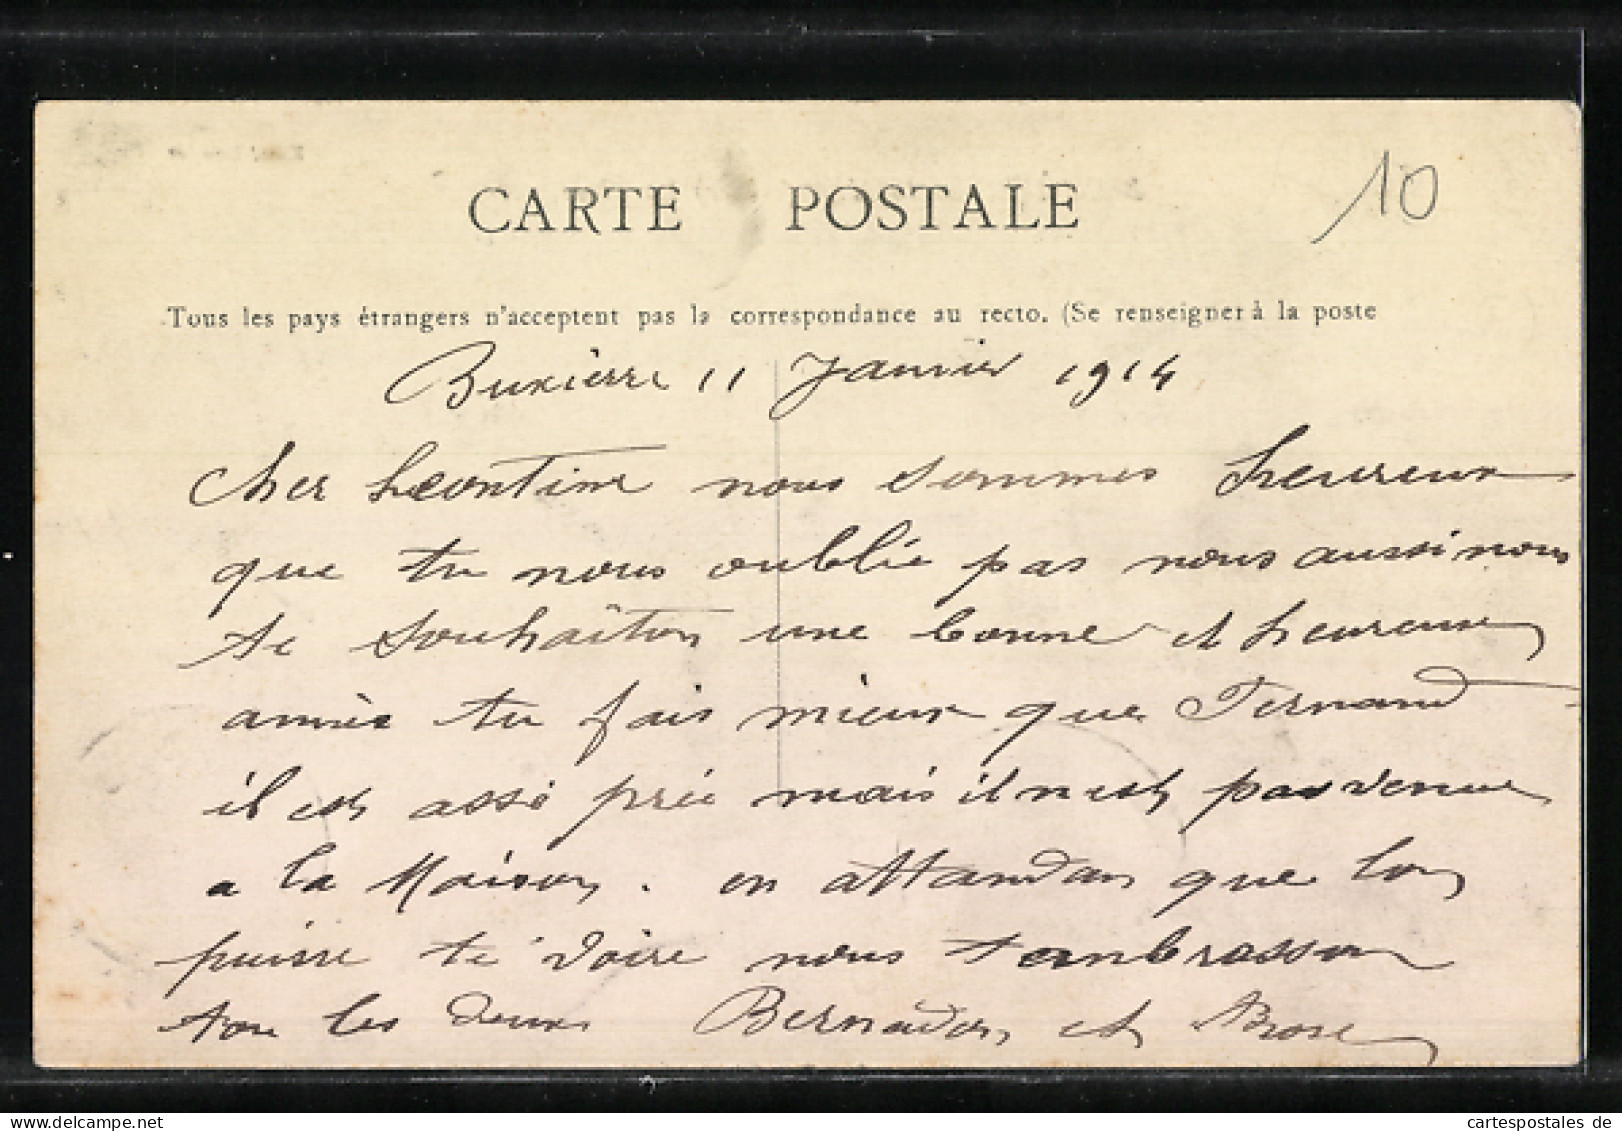 10
CARTE POSTALE
Tous les pays étrangers n'acceptent pas la correspondance au recto. (Se renseigner à la poste
Buxière 11 Janvier 1914
Cher Leontine nous sommes heureux
que tu nous oublie pas nous aussi nous
te souhaîton une bonne et heureuse
année tu fais mieux que Fernand
il est assé prée mais il nest pas venue
a la Maison. en attandan que lon
puisse te voire nous tembrasson
tou les deux Bernadon et Rose
cartespostales de